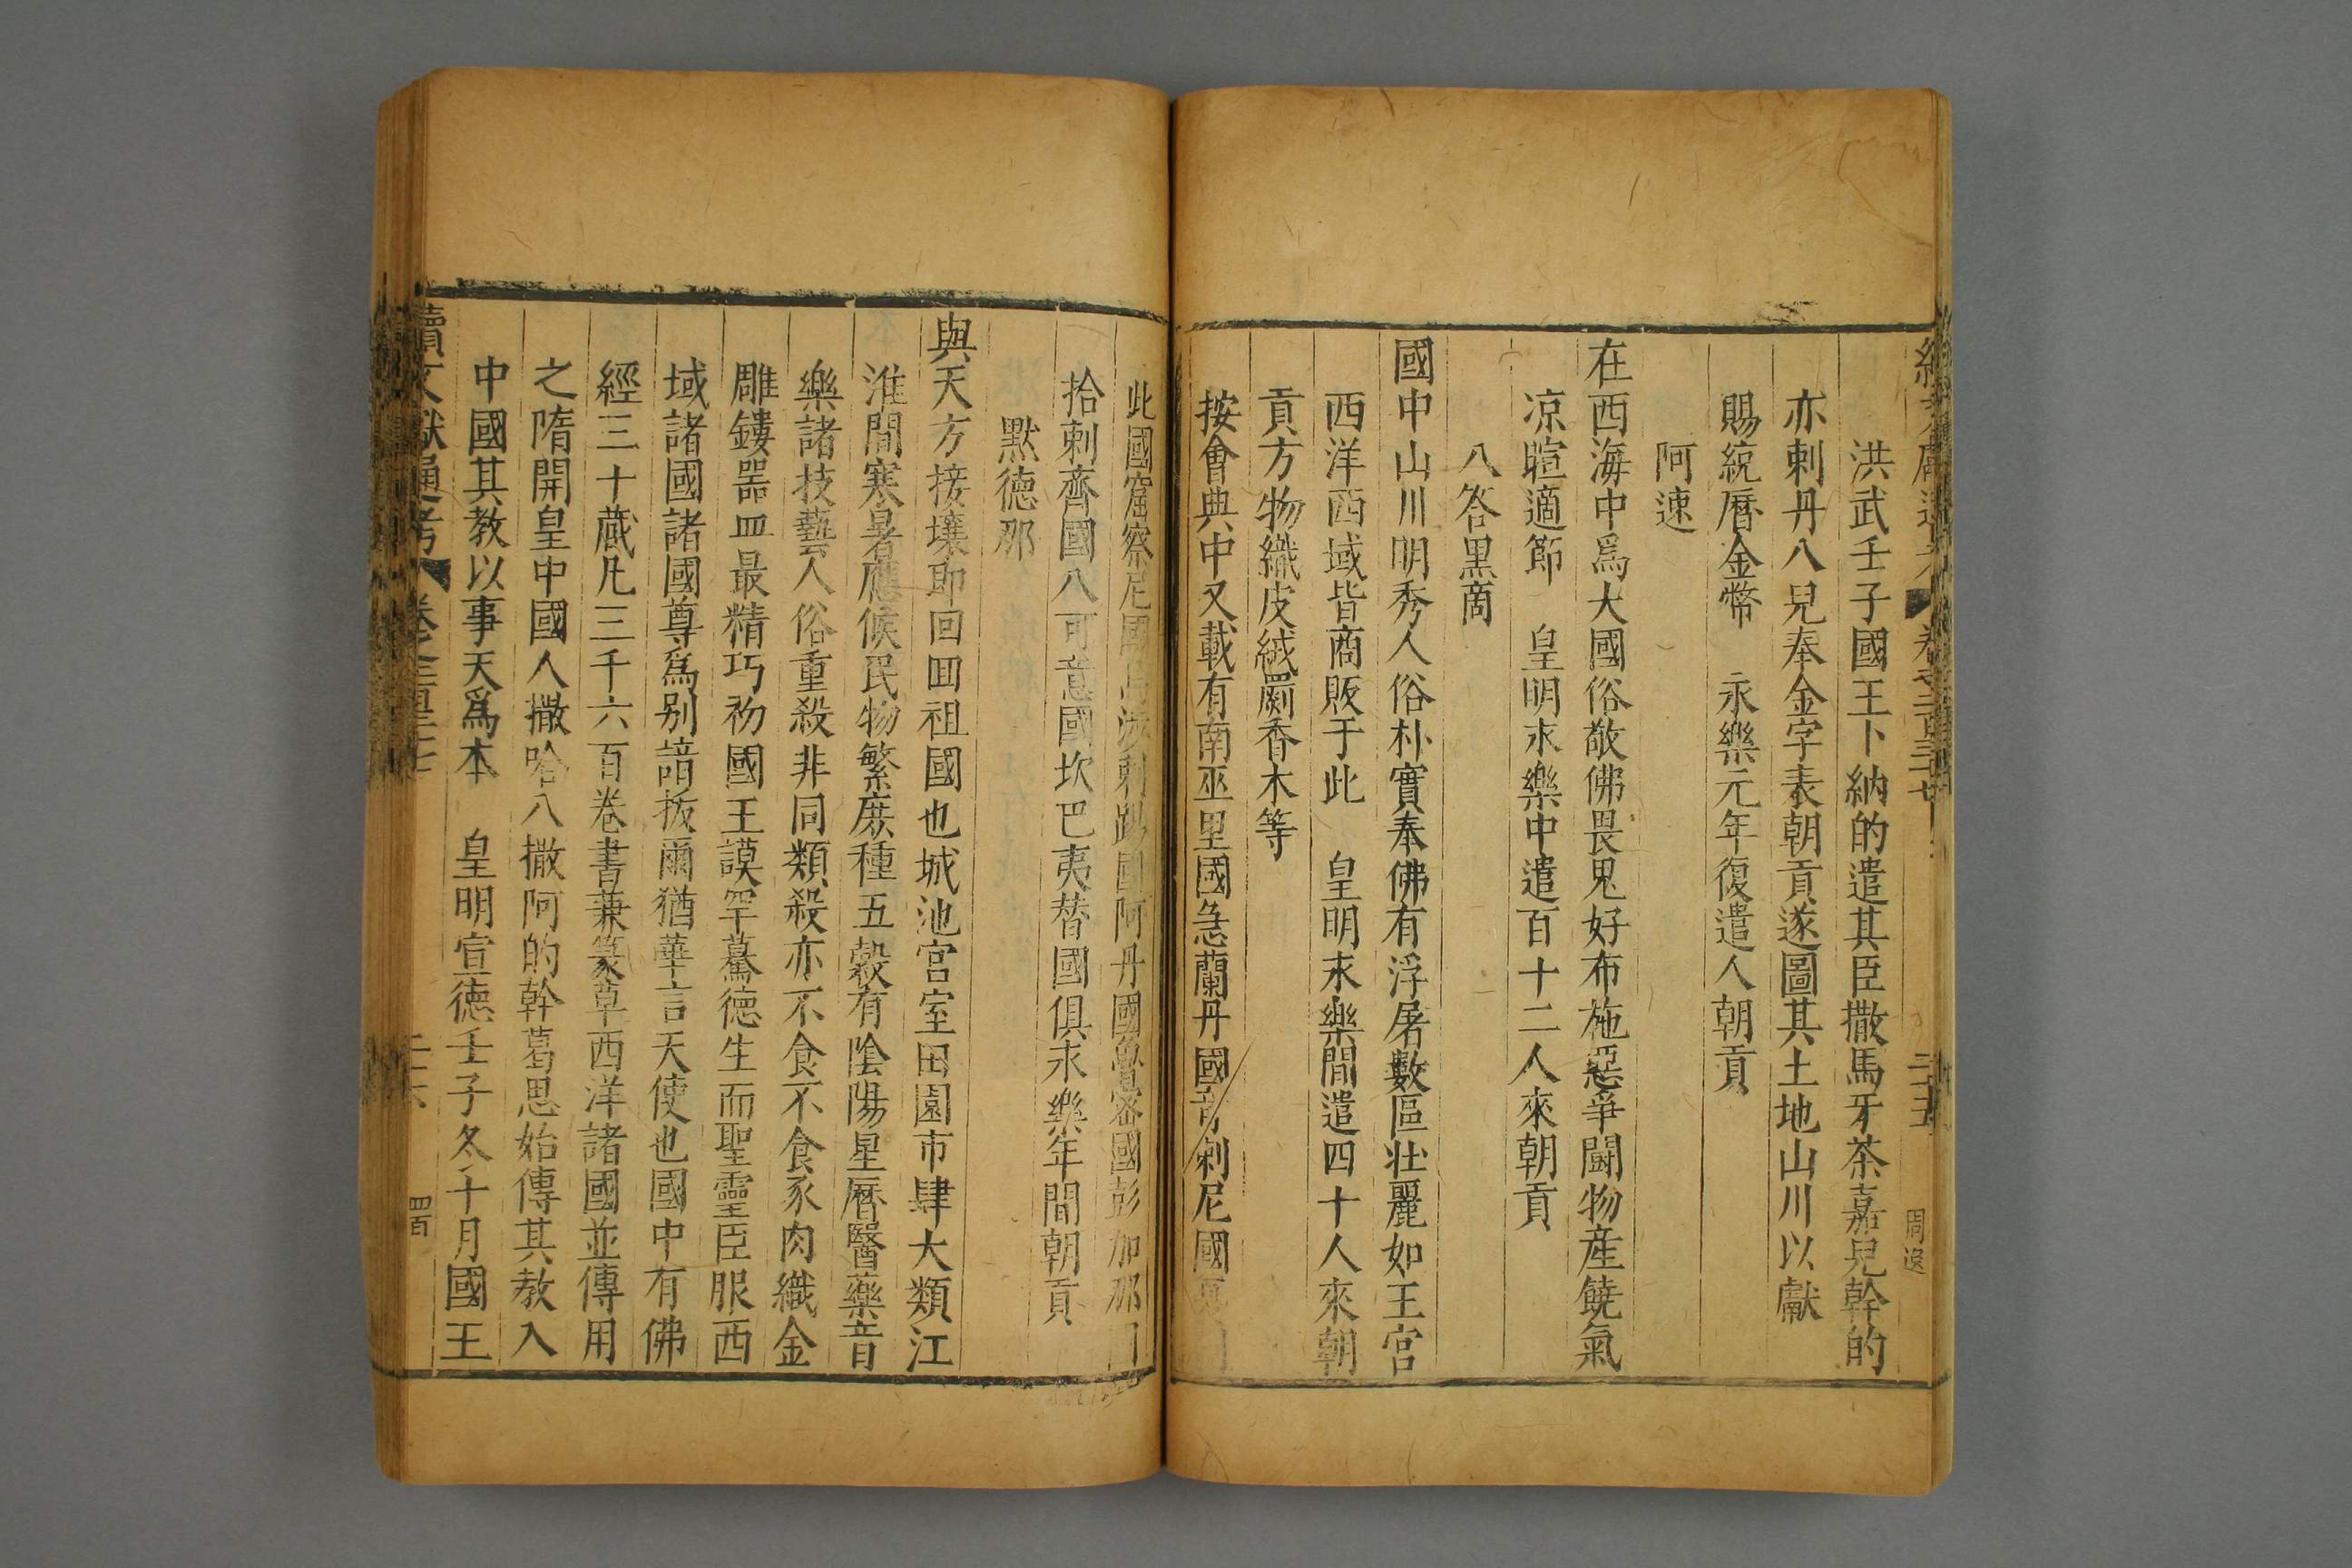 洪武壬子國王卜納的遣其臣撒馬牙茶嘉兒幹的
亦剌丹八兒奉金字表朝貢遂圖其土地山川以獻
賜統曆金幣　永樂元年復遣人朝貢
阿速
在西海中爲大國俗敬佛畏鬼好布施惡爭鬪物産饒氣
凉暄適節　皇明永樂中遣百十二人來朝貢
八答黑商
國中山川明秀人俗朴實奉佛有浮屠數區壮麗如王宮
西洋西域皆商販于此　皇明永樂間遣四十人來朝
貢方物織皮絨罽香木等
按會典中又載有南巫里國急蘭丹國竒剌尼國夏
此國窟察尼國烏涉剌踢國阿丹國魯密國彭加那
拾剌齊國八可意國坎巴夷替國俱永樂年間朝貢
黙德那
與天方接壤即回囬祖國也城池宮室田園市肆大類江
淮間寒暑應候民物繁庶種五穀有隂陽星曆醫藥音
樂諸技藝人俗重殺非同類殺亦不食不食豕肉織金
雕鏤噐皿最精巧初國王謨罕驀德生而聖靈臣服西
域諸國諸國尊爲别諳拔爾猶華言天使也國中有佛
經三十藏凡三千六百卷書兼篆草西洋諸國並傳用
之隋開皇中國人撒哈八撒阿的幹葛思始傳其教入
中國其教以事天爲本　皇明宣德壬子冬十月國王
續文獻通考　卷之二百三十七　二十六　四百